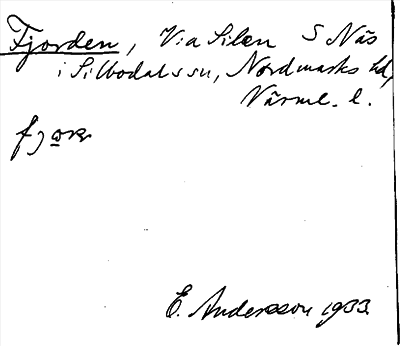 Fjorden, Via Silen S Näs
i Silbodals sn, Nordmarks hd,
Värml. l.
E. Andersson 1933.